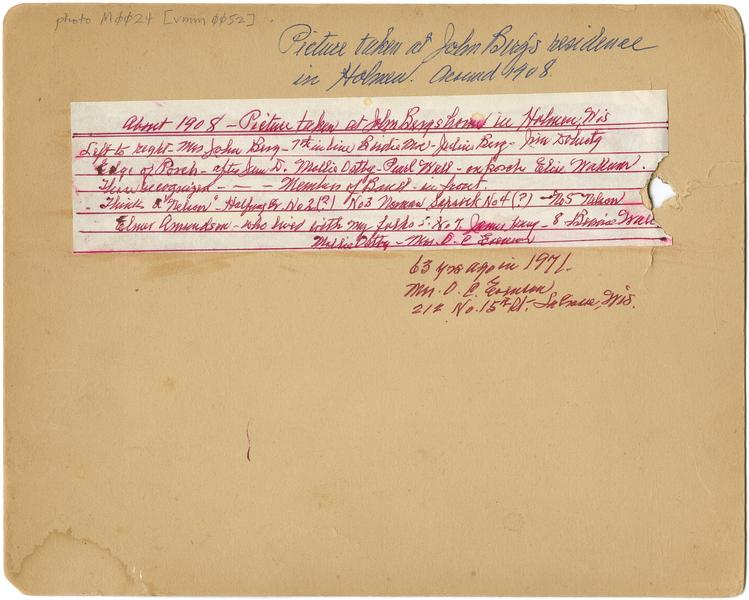 photo MØØ24 [vmm ØØ52]
Picture taken at John Berg's residence
in Holmen. Around 1908.
About 1908 - Picture taken at John Bergs home in Holmen, Wis
Left to right - Mrs John Berg - 7th in line Birdie - Julia Berg - Jim Doherty
Edge of Porch - after Jim D. Mollie Ostby - Pearl Wall - on porch Elsie
I have recognized - - - Members of Band - in front.
Think "Nelson" - No 2(?) No 3 Norman No 4(?) - No 5 Nelson
Elmer Amundson - who lived with my folks - No 7. James Berg - 8
Mollie Ostby - Mrs. O. C. Evenson
63 yrs ago in 1971.
Mrs. O. C. Evenson
212 No. 15th St. LaCrosse, Wis.